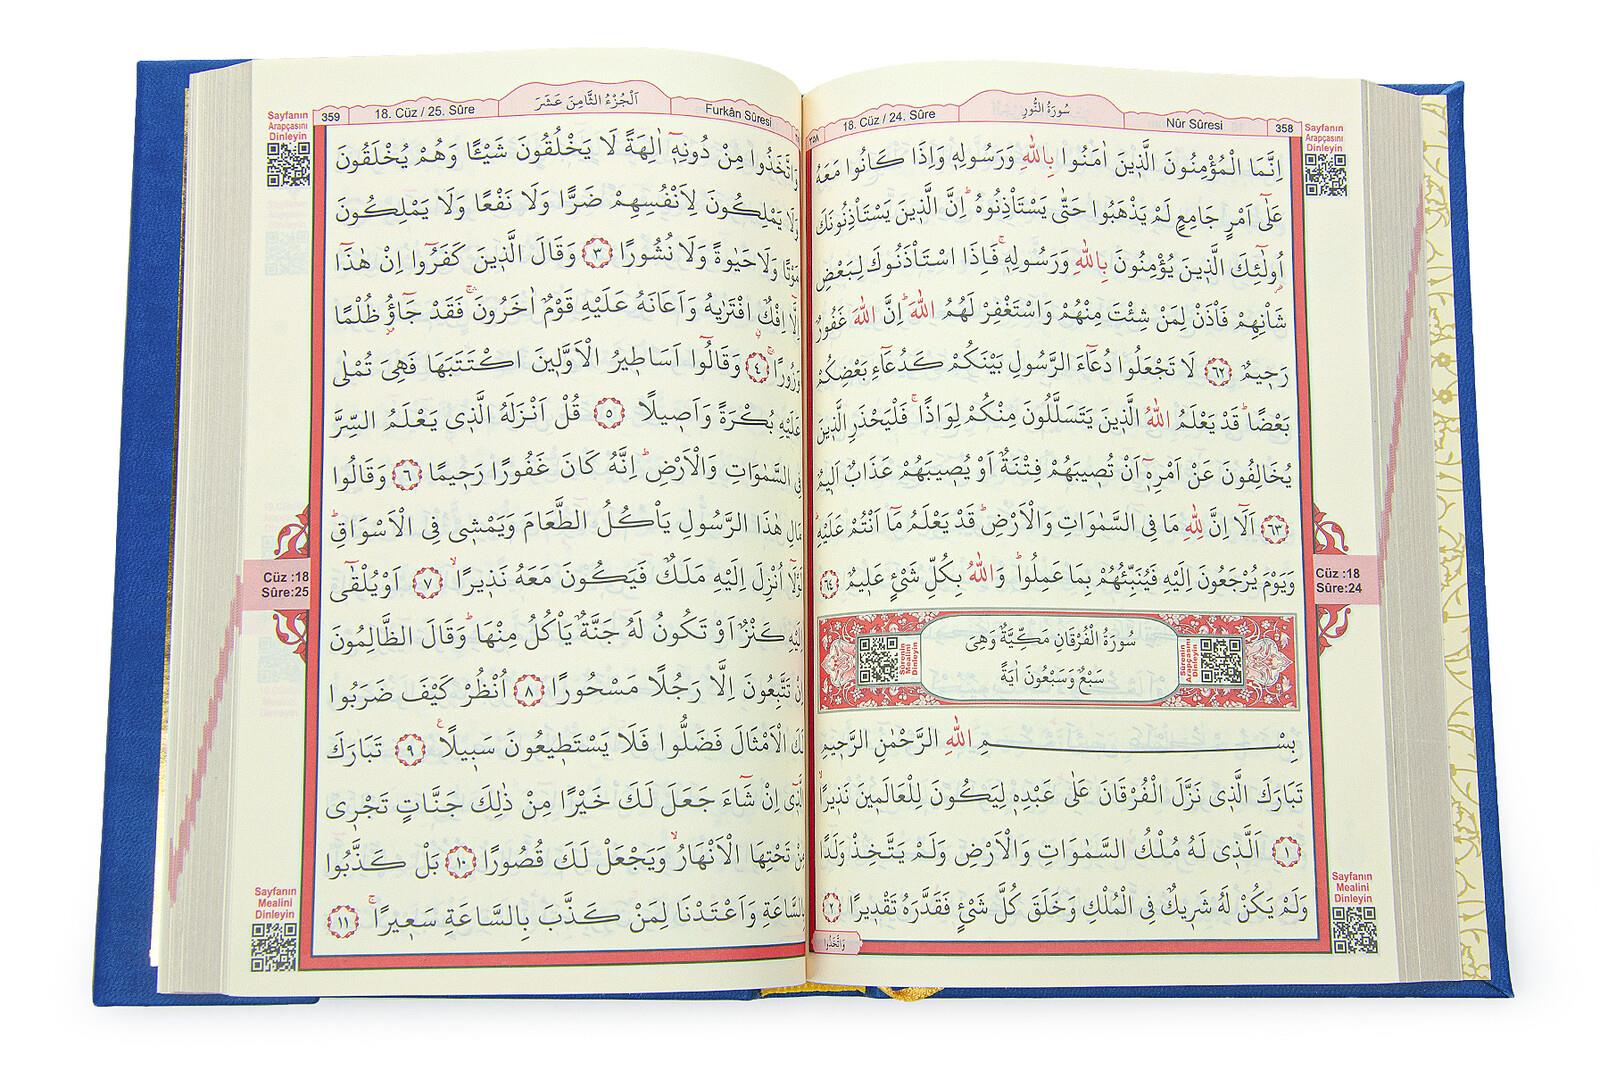 Sayfanın
Arapçasını
Dinleyin
358
Nûr Sûresi
سُورَةُ النُّورِ
18. Cüz / 24. Sûre
٣٥٨
اِنَّمَا الْمُؤْمِنُونَ الَّذ۪ينَ اٰمَنُوا بِاللّٰهِ وَرَسُولِه۪ وَاِذَا كَانُوا مَعَهُ
عَلٰٓى اَمْرٍ جَامِعٍ لَمْ يَذْهَبُوا حَتّٰى يَسْتَأْذِنُوهُۜ اِنَّ الَّذ۪ينَ يَسْتَأْذِنُونَكَ
اُو۬لٰٓئِكَ الَّذ۪ينَ يُؤْمِنُونَ بِاللّٰهِ وَرَسُولِه۪ۚ فَاِذَا اسْتَأْذَنُوكَ لِبَعْضِ
شَأْنِهِمْ فَأْذَنْ لِمَنْ شِئْتَ مِنْهُمْ وَاسْتَغْفِرْ لَهُمُ اللّٰهَۜ اِنَّ اللّٰهَ غَفُورٌ
رَح۪يمٌ ﴿٦٢﴾ لَا تَجْعَلُوا دُعَٓاءَ الرَّسُولِ بَيْنَكُمْ كَدُعَٓاءِ بَعْضِكُمْ
بَعْضًاۜ قَدْ يَعْلَمُ اللّٰهُ الَّذ۪ينَ يَتَسَلَّلُونَ مِنْكُمْ لِوَاذًاۚ فَلْيَحْذَرِ الَّذ۪ينَ
يُخَالِفُونَ عَنْ اَمْرِه۪ٓ اَنْ تُص۪يبَهُمْ فِتْنَةٌ اَوْ يُص۪يبَهُمْ عَذَابٌ اَل۪يمٌ
﴿٦٣﴾ اَلَٓا اِنَّ لِلّٰهِ مَا فِي السَّمٰوَاتِ وَالْاَرْضِۜ قَدْ يَعْلَمُ مَٓا اَنْتُمْ عَلَيْهِۜ
وَيَوْمَ يُرْجَعُونَ اِلَيْهِ فَيُنَبِّئُهُمْ بِمَا عَمِلُواۜ وَاللّٰهُ بِكُلِّ شَيْءٍ عَل۪يمٌ ﴿٦٤﴾
Cüz :18
Sûre:24
سُورَةُ الْفُرْقَانِ مَكِّيَّةٌ وَهِيَ
سَبْعٌ وَسَبْعُونَ اٰيَةً
Sûrenin
Arapçasını
Dinleyin
Sûrenin
Mealini
Dinleyin
بِسْمِ اللّٰهِ الرَّحْمٰنِ الرَّح۪يمِ
تَبَارَكَ الَّذ۪ي نَزَّلَ الْفُرْقَانَ عَلٰى عَبْدِه۪ لِيَكُونَ لِلْعَالَم۪ينَ نَذ۪يرًاۙ
﴿١﴾ اَلَّذ۪ي لَهُ مُلْكُ السَّمٰوَاتِ وَالْاَرْضِ وَلَمْ يَتَّخِذْ وَلَدًا
وَلَمْ يَكُنْ لَهُ شَر۪يكٌ فِي الْمُلْكِ وَخَلَقَ كُلَّ شَيْءٍ فَقَدَّرَهُ تَقْد۪يرًا ﴿٢﴾
وَاتَّخَذُوا
Sayfanın
Mealini
Dinleyin
Sayfanın
Arapçasını
Dinleyin
359
18. Cüz / 25. Sûre
اَلْجُزْءُ الثَّامِنَ عَشَرَ
Furkân Sûresi
وَاتَّخَذُوا مِنْ دُونِه۪ٓ اٰلِهَةً لَا يَخْلُقُونَ شَيْـًٔا وَهُمْ يُخْلَقُونَ
وَلَا يَمْلِكُونَ لِاَنْفُسِهِمْ ضَرًّا وَلَا نَفْعًا وَلَا يَمْلِكُونَ
مَوْتًا وَلَا حَيٰوةً وَلَا نُشُورًا ﴿٣﴾ وَقَالَ الَّذ۪ينَ كَفَرُٓوا اِنْ هٰذَٓا
اِلَّٓا اِفْكٌۨ افْتَرٰيهُ وَاَعَانَهُ عَلَيْهِ قَوْمٌ اٰخَرُونَۚۛ فَقَدْ جَٓاؤُ۫ ظُلْمًا
وَزُورًاۚۛ ﴿٤﴾ وَقَالُٓوا اَسَاط۪يرُ الْاَوَّل۪ينَ اكْتَتَبَهَا فَهِيَ تُمْلٰى
عَلَيْهِ بُكْرَةً وَاَص۪يلًا ﴿٥﴾ قُلْ اَنْزَلَهُ الَّذ۪ي يَعْلَمُ السِّرَّ
فِي السَّمٰوَاتِ وَالْاَرْضِۜ اِنَّهُ كَانَ غَفُورًا رَح۪يمًا ﴿٦﴾ وَقَالُوا
مَالِ هٰذَا الرَّسُولِ يَأْكُلُ الطَّعَامَ وَيَمْش۪ي فِي الْاَسْوَاقِۜ
لَوْلَٓا اُنْزِلَ اِلَيْهِ مَلَكٌ فَيَكُونَ مَعَهُ نَذ۪يرًاۙ ﴿٧﴾ اَوْ يُلْقٰٓى
اِلَيْهِ كَنْزٌ اَوْ تَكُونُ لَهُ جَنَّةٌ يَأْكُلُ مِنْهَاۜ وَقَالَ الظَّالِمُونَ
اِنْ تَتَّبِعُونَ اِلَّا رَجُلًا مَسْحُورًا ﴿٨﴾ اُنْظُرْ كَيْفَ ضَرَبُوا
لَكَ الْاَمْثَالَ فَضَلُّوا فَلَا يَسْتَط۪يعُونَ سَب۪يلًا۟ ﴿٩﴾ تَبَارَكَ
الَّذ۪ٓي اِنْ شَٓاءَ جَعَلَ لَكَ خَيْرًا مِنْ ذٰلِكَ جَنَّاتٍ تَجْر۪ي
مِنْ تَحْتِهَا الْاَنْهَارُۙ وَيَجْعَلْ لَكَ قُصُورًا ﴿١٠﴾ بَلْ كَذَّبُوا
بِالسَّاعَةِ وَاَعْتَدْنَا لِمَنْ كَذَّبَ بِالسَّاعَةِ سَع۪يرًاۚ ﴿١١﴾
Cüz :18
Sûre:25
Sayfanın
Mealini
Dinleyin